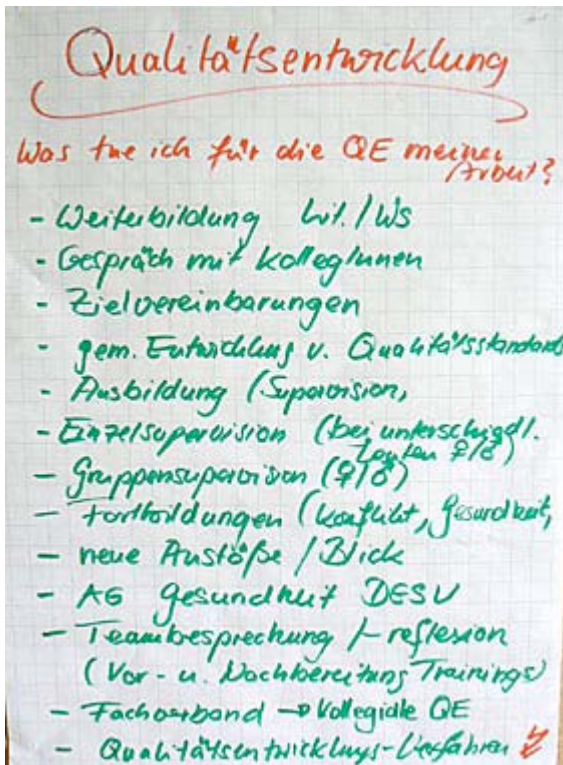 Qualitätsentwicklung
Was tue ich für die QE meiner
Arbeit?
- Weiterbildung Lit./Ws
- Gespräch mit KollegInnen
- Zielvereinbarungen
- gem. Entwicklung v. Qualitätsstandards
- Ausbildung (Supervision,
- Einzelsupervision (bei unterschiedl.
Leuten ♀/♂)
- Gruppensupervision (♀/♂)
- Fortbildungen (Konflikt, Gesundheit,
- neue Anstöße / Blick
- AG Gesundheit DGSv
- Teambesprechung /-reflexion
(Vor- u. Nachbereitung Trainings)
- Fachverband → Kollegiale QE
- Qualitätsentwicklungs-Verfahren